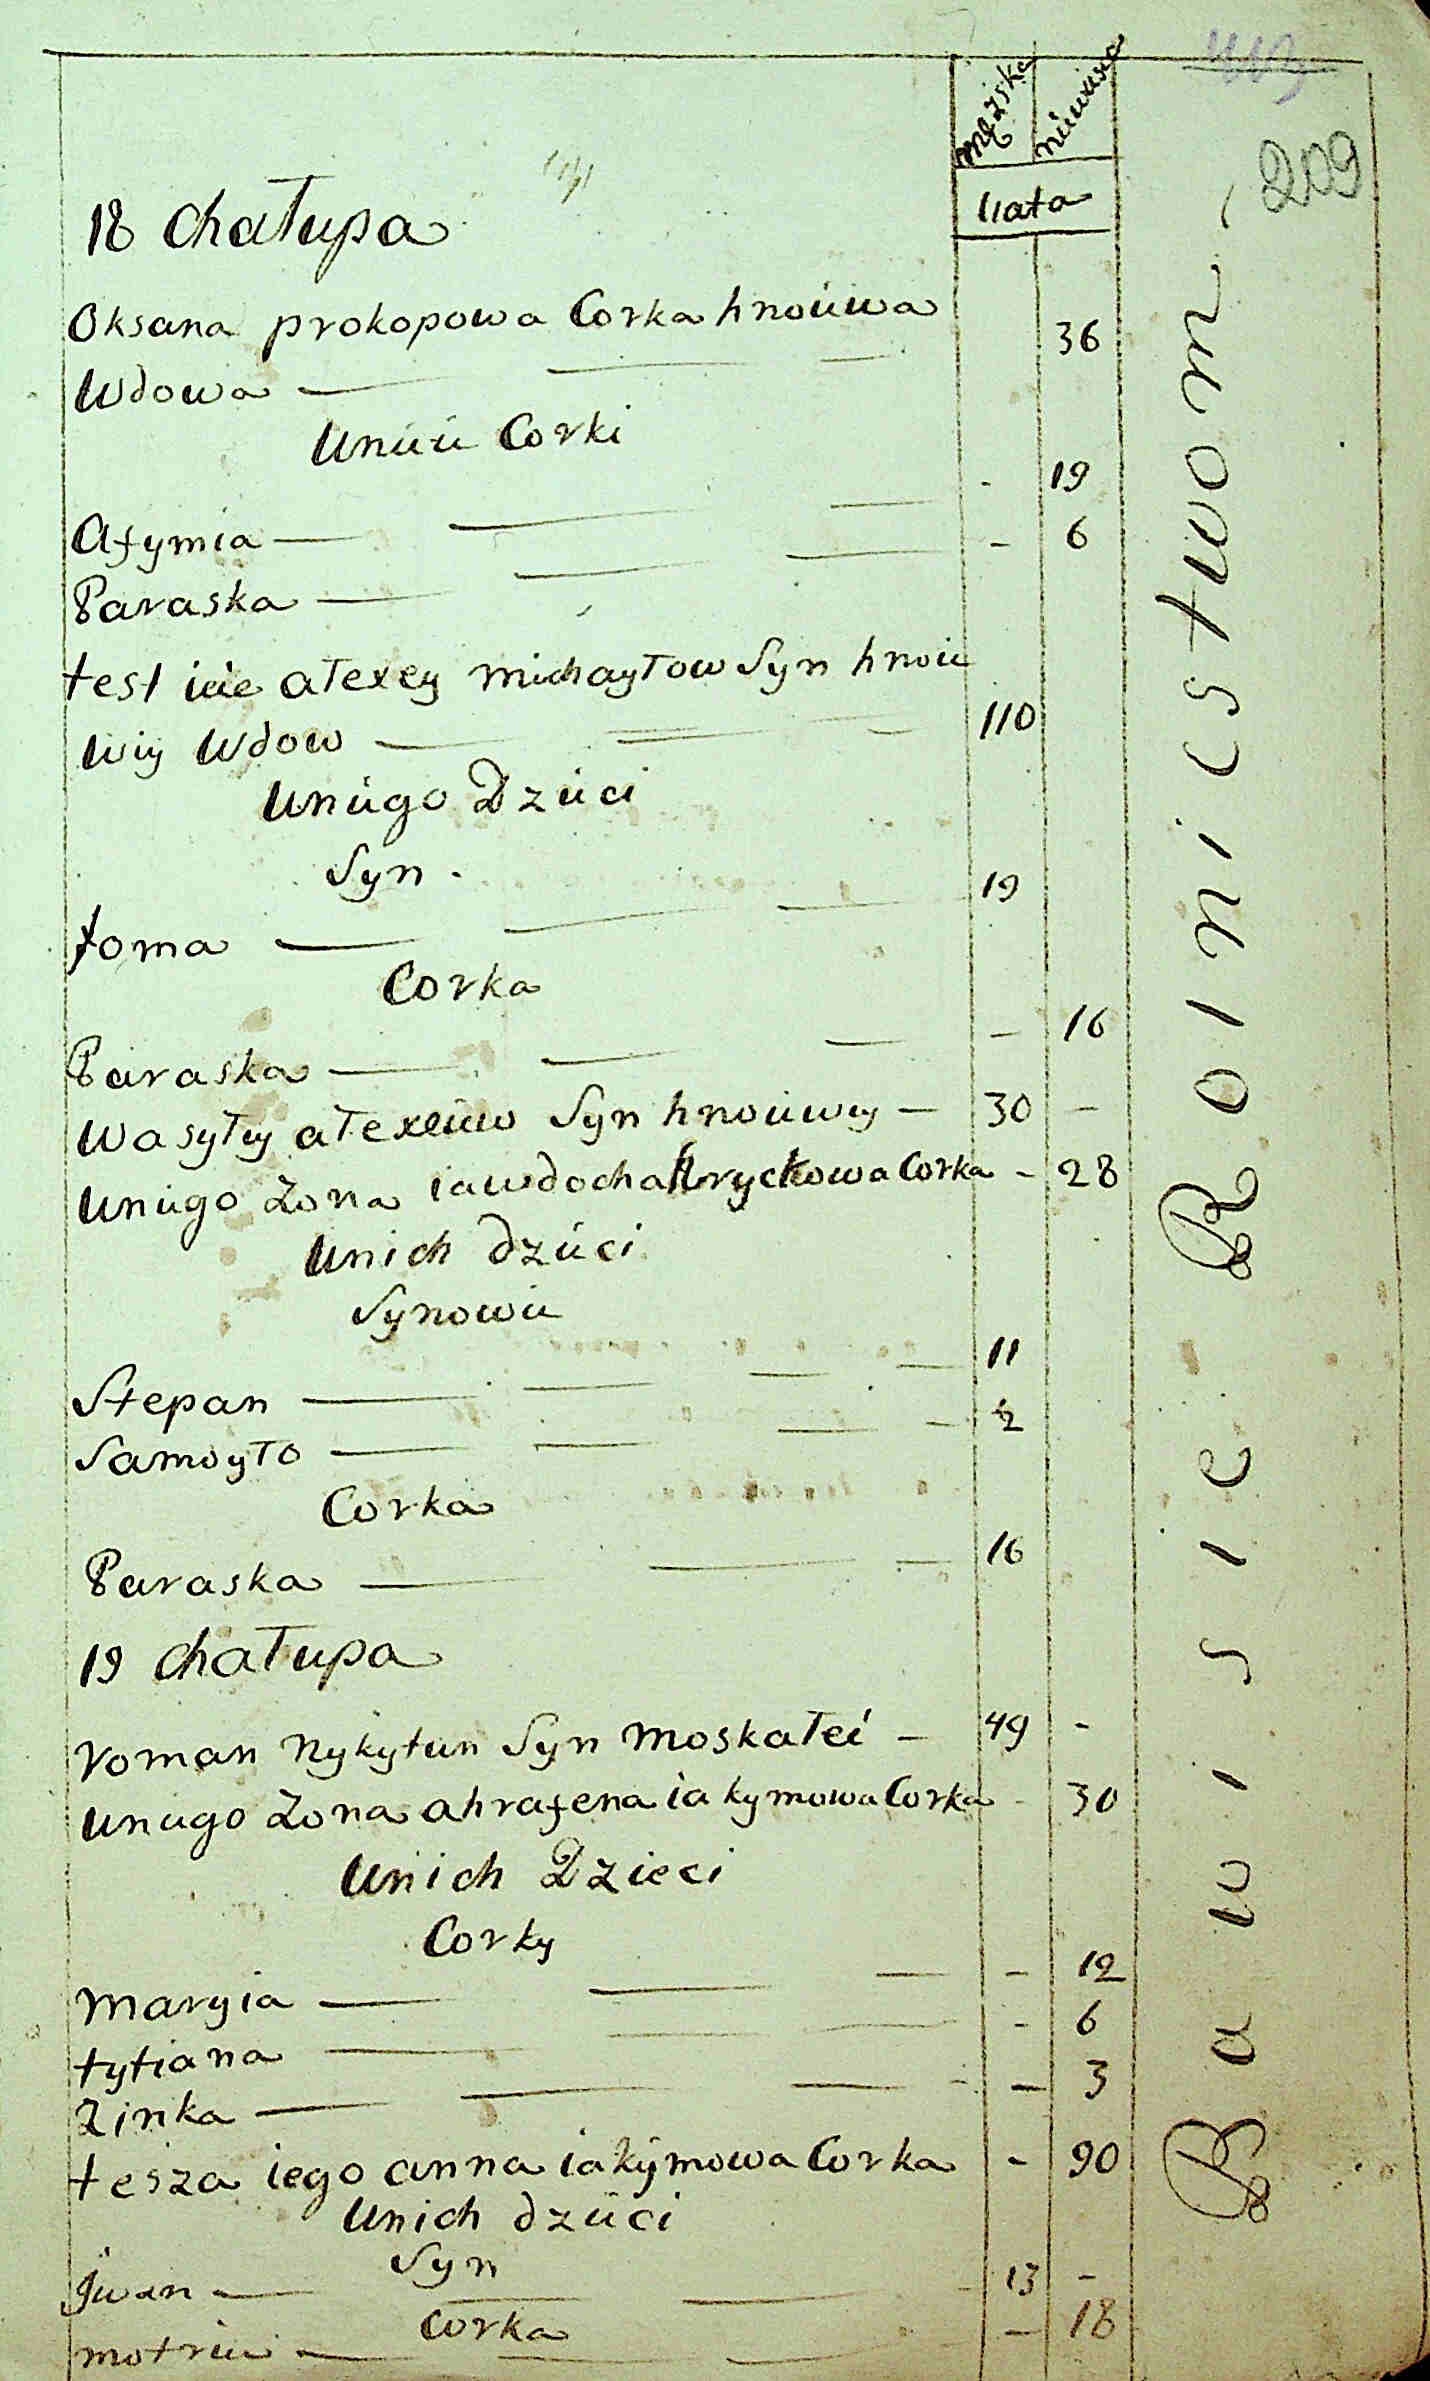 413
209
męzska
niewisca
liata
18 chałupa
Oksana prokopowa Corka hnoiiwa 36
Wdowa
Uniii Corki
Afymia - 19
Paraska - 6
test iiie ałexey michayłow Syn hnoii
wiy Wdow 110
Uniigo Dziici
Syn
foma 19
Corka
Paraska - 16
Wasyłey ałexeiiw Syn hnoiiwey 30 -
Uniigo żona iawdocha hryckowa Corka - 28
Unich dziici
Synowii
Stepan 11
Samoyło 2
Corka
Paraska 16
19 chałupa
roman Nykytun Syn moskałei 49 -
Uniigo żona ahrafena iakymowa Corka - 30
Unich Dzieci
Corky
maryia - 12
tytiana - 6
Zinka - 3
tesza iego anna iakymowa Corka - 90
Unich dziici
Syn
Jwan 13 -
Corka
motria - 18
Bawi sie Rolnictwom